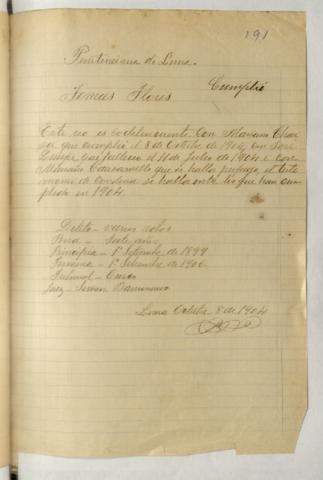 191
Penitenciaria de Lima.
Cumplió
Tomas Flores
Este reo es codelincuente con Mariano
que cumplió el 8 de Octubre de 1904, con José
que falleció el 11 de Julio de 1904 i con
Mariano que se halla profugo, el testi
monio de condena se halla entre los que han cum
plido en 1904.
Delito - varios robos
Pena - Siete años
Principia - 1º Setiembre de 1899
Termina - 1º Setiembre de 1906
Tribunal - Cuzco
Juez -
Lima Octubre 8 de 1904